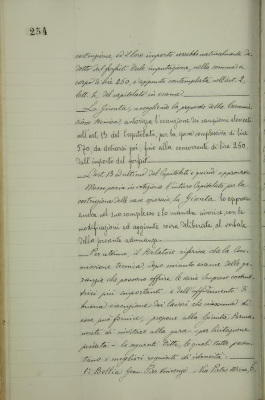 254
costruzione, ed il loro importo verrebbe naturalmente de-
dotto dal forfait. Dalla imputazione, nella somma a
corpo di lire 250, è appunto contemplata nell'art. 2,
lett. h, del capitolato in esame.
La Giunta, accogliendo la proposta della Commis-
sione tecnica, autorizza l'esecuzione dei campioni elencati
all'art. 13 del Capitolato, per la spesa complessiva di lire
570, da dedursi poi, fino alla concorrente di lire 250,
dall'importo del forfait.
L'art. 13 è l'ultimo del Capitolato e quindi è approvato
l'intero Capitolato per la
costruzione delle case operaie, la Giunta lo approva
anche nel suo complesso e lo manda inviare con le
modificazioni ed aggiunte come deliberate al verbale
della presente adunanza.
Per ultimo, il Relatore riferisce che la Com-
missione tecnica, dopo accurato esame delle ga-
ranzie che possono offrire le varie Imprese costrut-
trici più importanti e dell'affidamento di
buona esecuzione dei lavori che ciascuna di
esse può fornire, propone alla Giunta Perma-
nente di invitare alla gara - per licitazione
privata - le seguenti Ditte, le quali tutte presen-
tano i migliori requisiti di idoneità:
1. Bellia Gian Pier Vincenzo - Via Pietro Micca, 6.